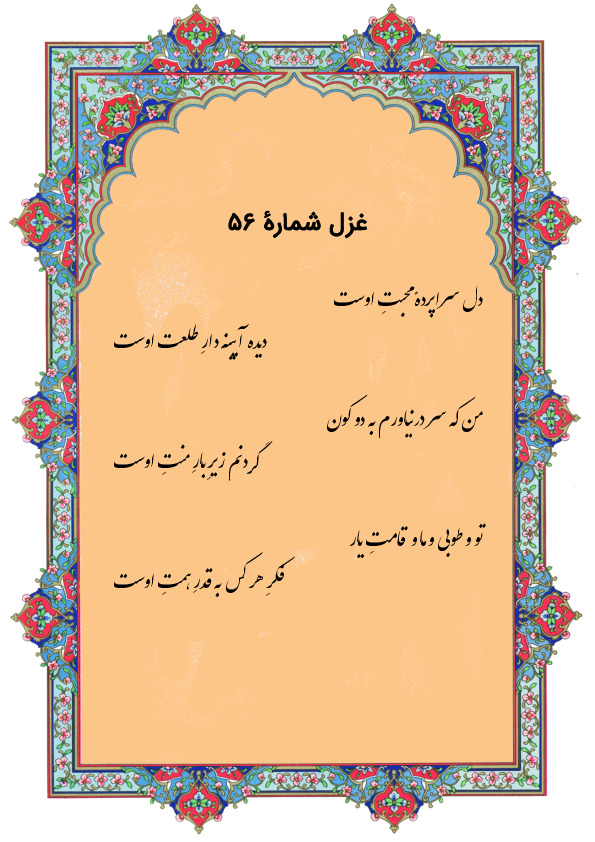 غزل شمارهٔ ۵۶
دل سراپردهٔ محبتِ اوست
دیده آیینه دارِ طلعت اوست
من که سر درنیاورم به دو کون
گردنم زیرِ بارِ منتِ اوست
تو و طوبی و ما و قامتِ یار
فکرِ هر کس به قدرِ همتِ اوست